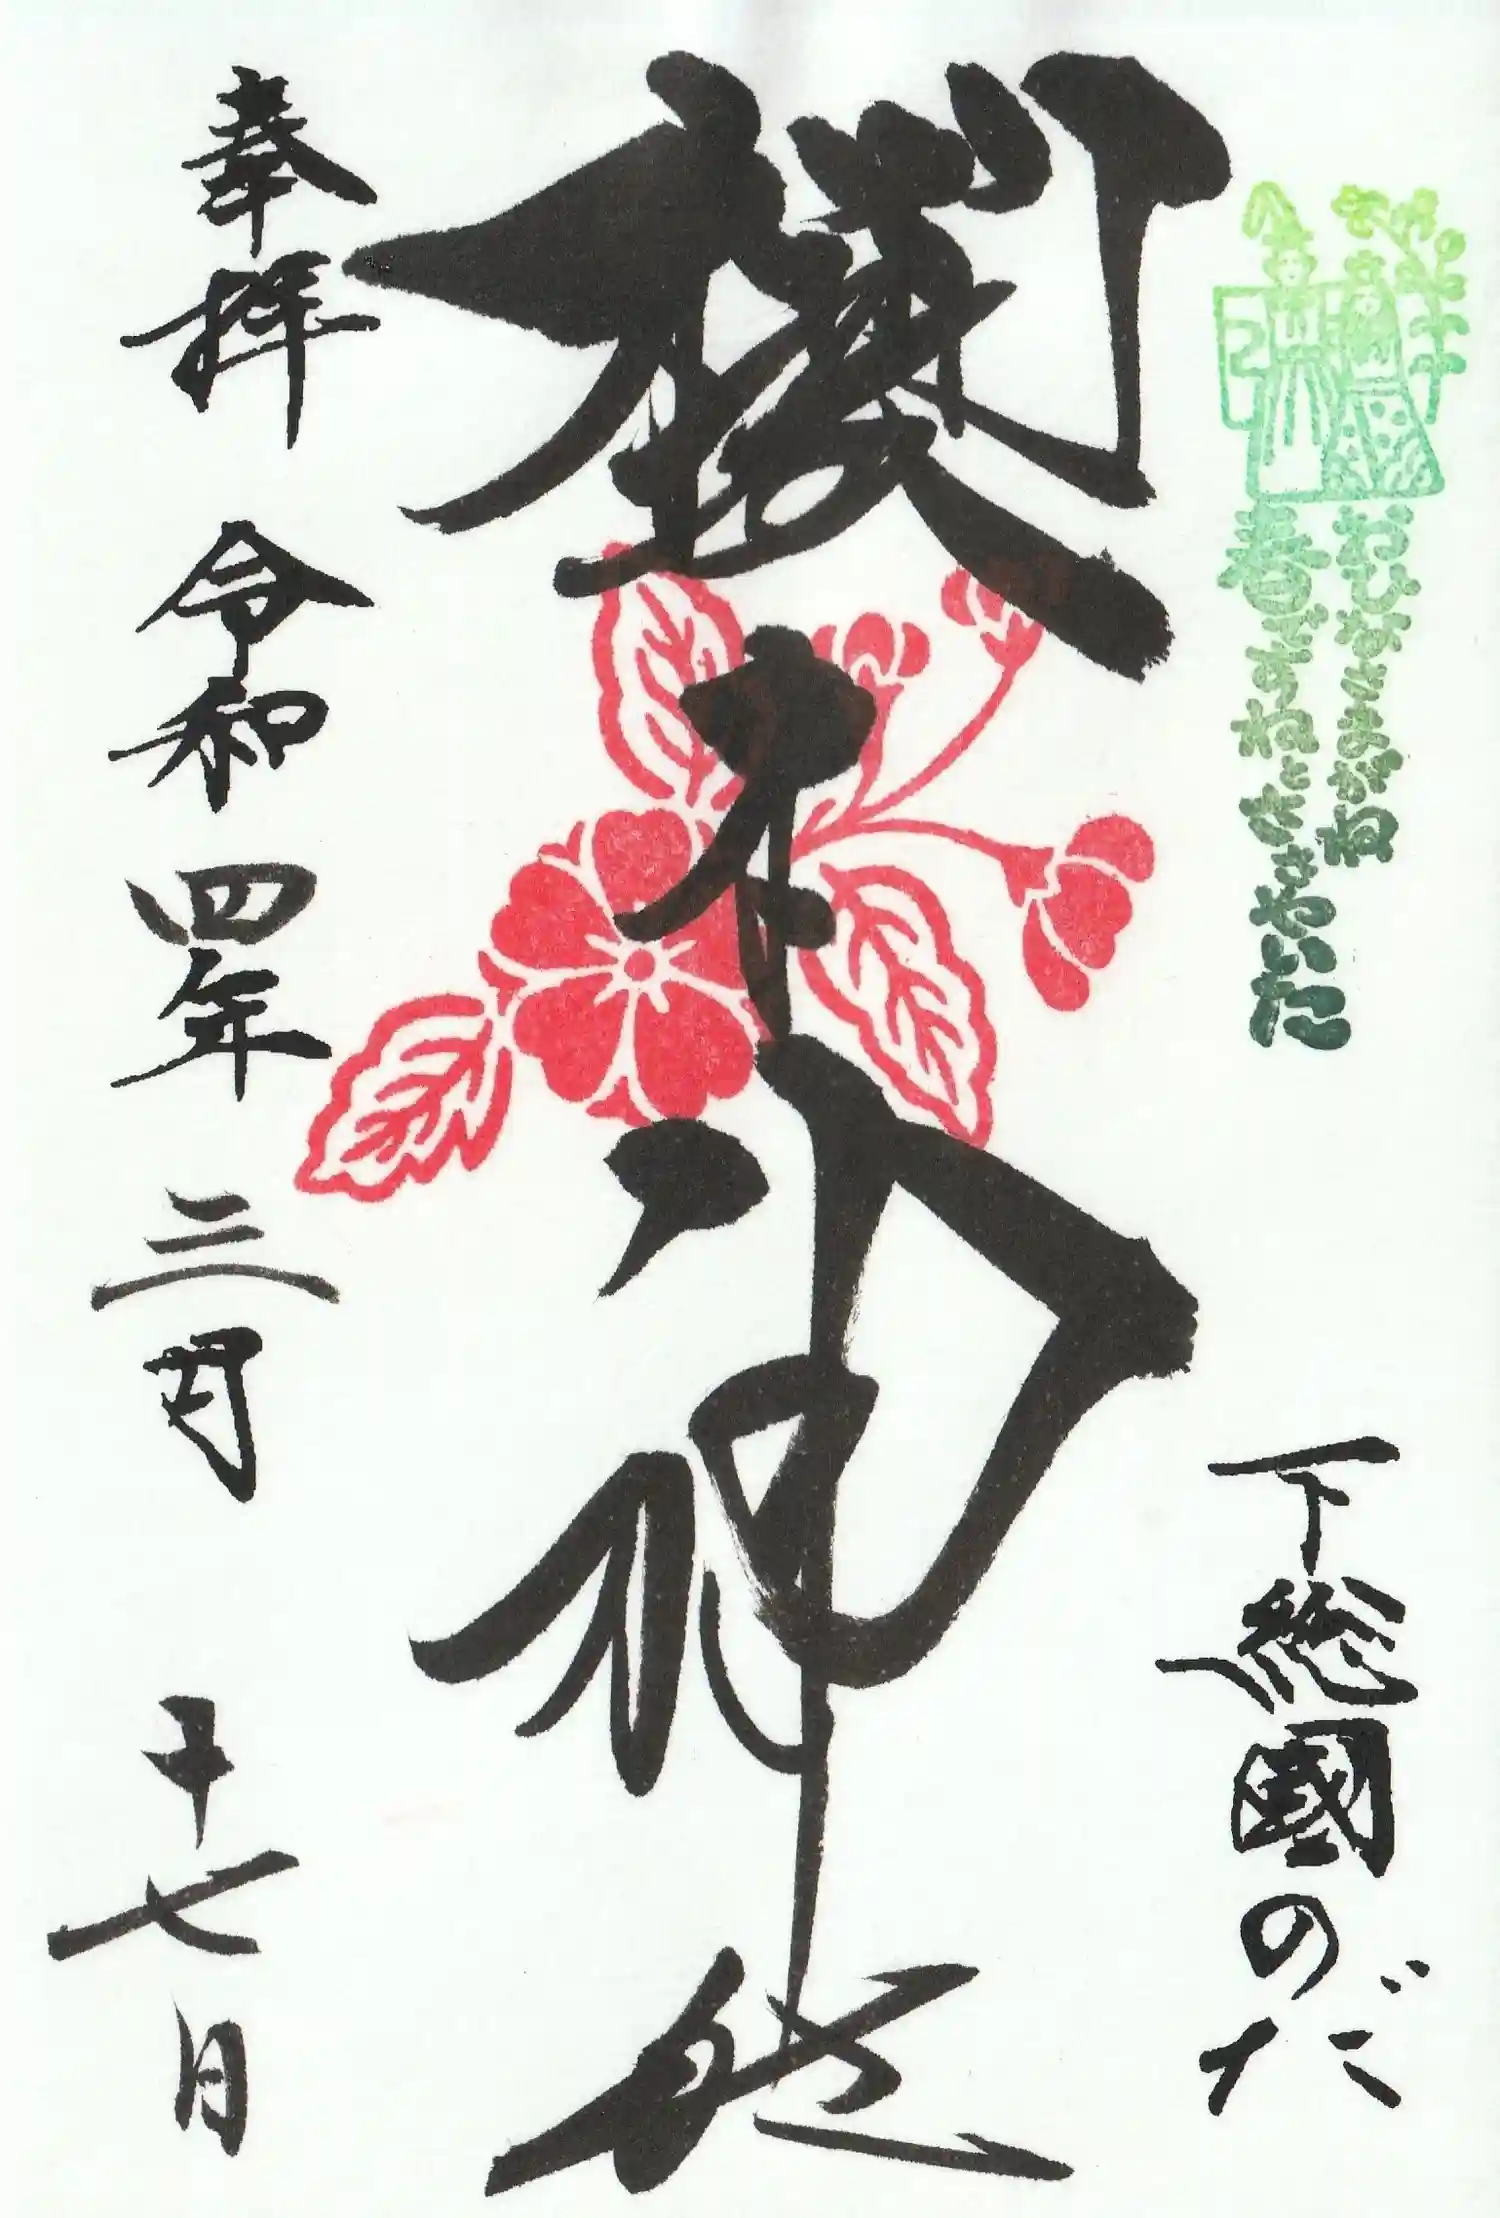 おひなさまがね
春ですねとささやいた
下総國のだ
櫻木神社
奉拝 令和四年三月十七日